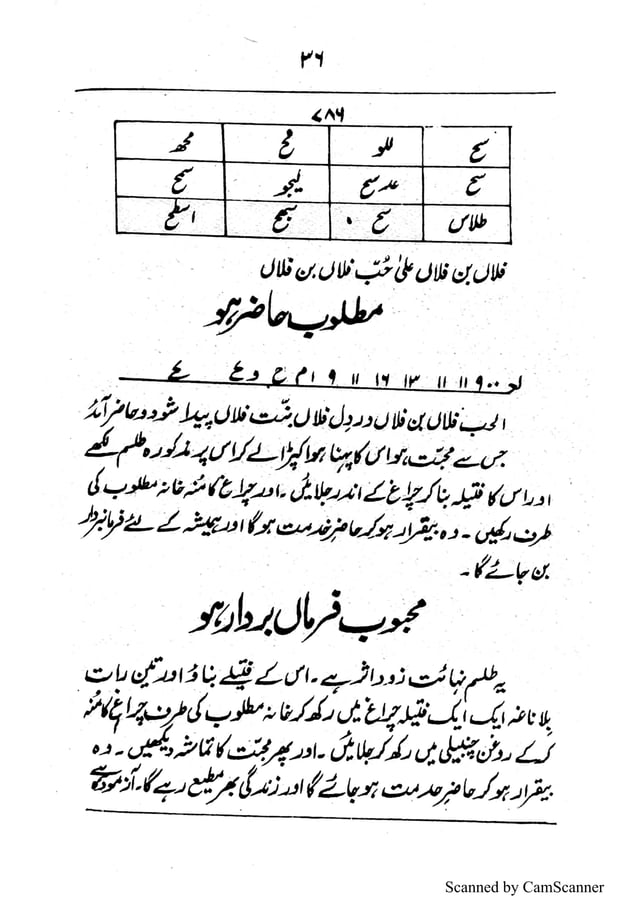 ۳۶
۷۸۶
سح للو مح محھ
سح عدسح لیجو سمح
طلاس سح سبح اسطح
فلاں بن فلاں علیٰ حُبّ فلاں بن فلاں
مطلوب حاضر ہو
لعہ ۹۰۰ ۱۱ ۱۱ ۱۳ ۱۶ ۱۱ ۹ ۱ م ح وع ع
الحب فلاں بن فلاں در دِل فلاں بنّت فلاں پیدا شود و حاضر آمد
جس سے محبّت ہو اس کا پہنا ہوا کپڑا لے کر اس پر مذکورہ طلسم لکھے
اور اس کا فتیلہ بنا کر چراغ کے اندر جلائیں۔ اور چراغ کا مُنہ خانہ مطلوب کی
طرف رکھیں۔ وہ بیقرار ہو کر حاضر خدمت ہو گا اور ہمیشہ کے لئے فرمانبردار
بن جائے گا۔
محبوب فرماں بردار ہو
یہ طلسم نہائت زود اثر ہے۔ اس کے فتیلے بناؤ اور تین رات
بِلا ناغہ ایک ایک فتیلہ چراغ میں رکھ کر خانہ مطلوب کی طرف چراغ کا مُنہ
کر کے روغن چنبیلی میں رکھ کر جلائیں۔ اور پھر محبّت کا تماشہ دیکھیں۔ وہ
بیقرار ہو کر حاضر خدمت ہو جائے گا اور زندگی بھر مطیع رہے گا۔ آزمودہ ہے
Scanned by CamScanner